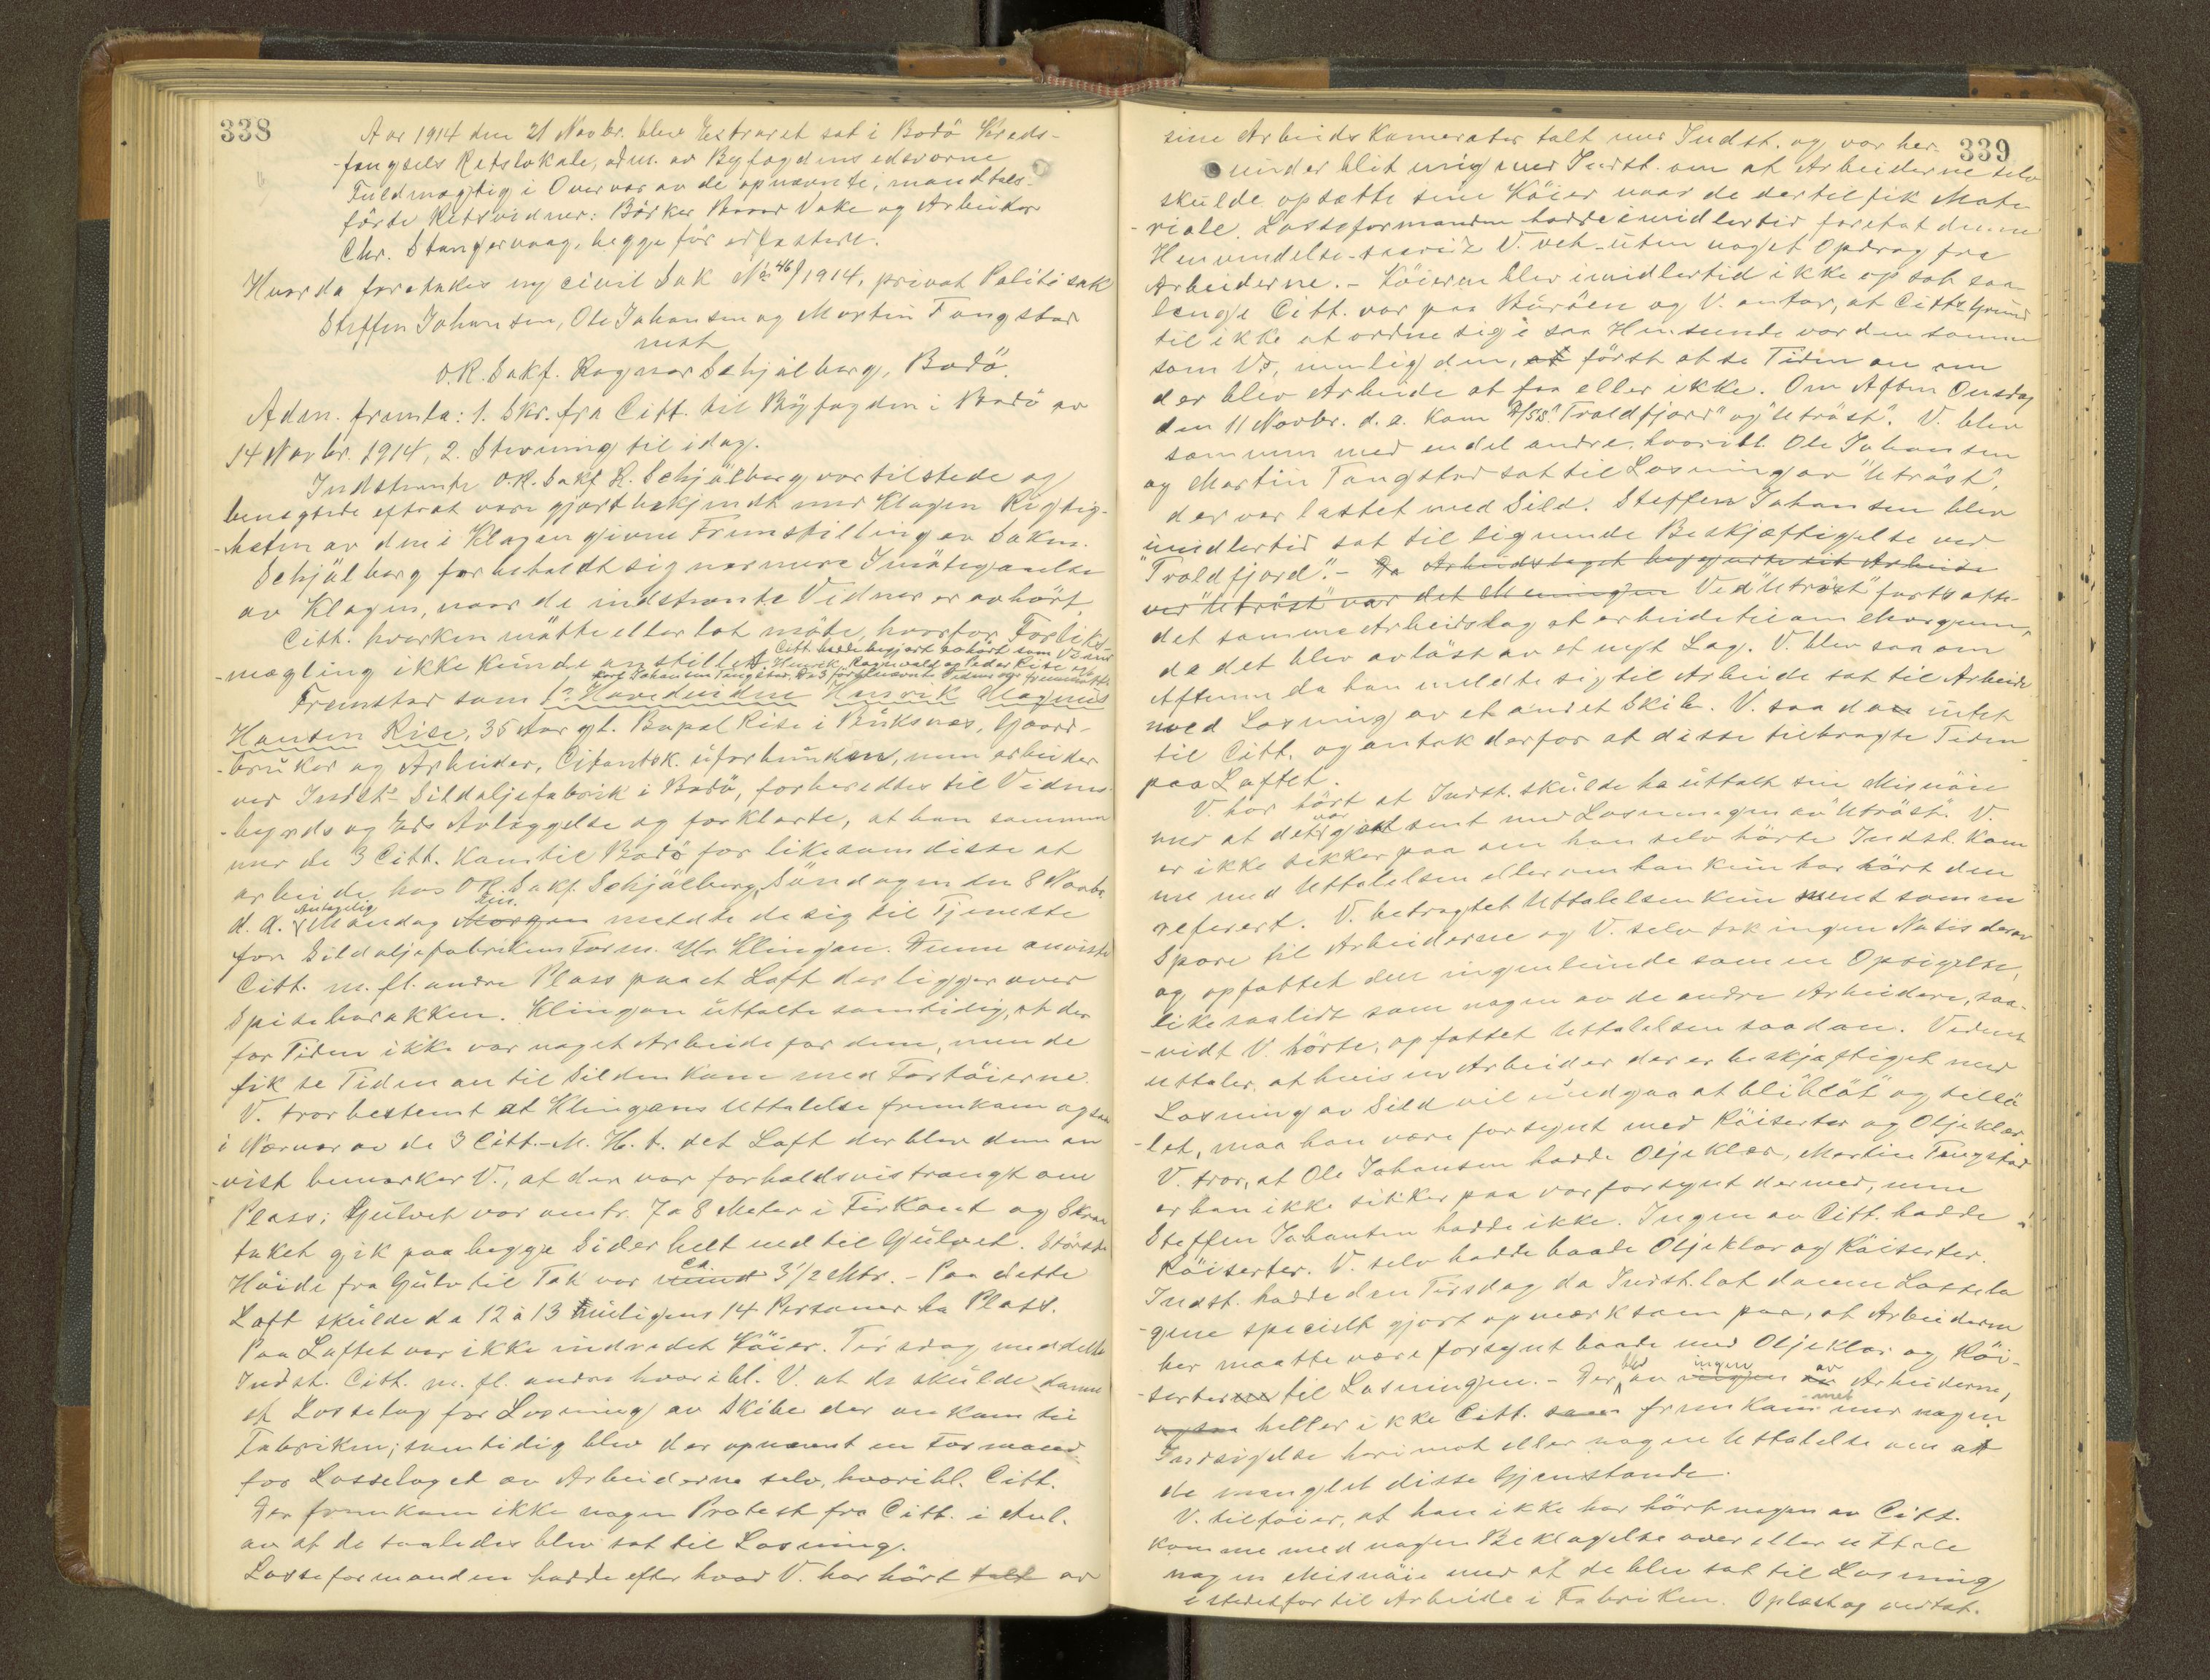 338
Aar 1914 den 21 Novbr. blev Extraret sat i Bodö Kreds-
-fengsels Retslokale, adm. av Byfogdens edsvorne
Fuldmægtig i Overvær av de opnævnte, mandtals-
förte Retsvidner: og Arbeider
Chr. Stangervaag, begge för edfæstede.
Hvorda foretages ny civil Sak No 46/1914, privat Politisak
Steffen Johansen, Ole Johansen og Martin Tangstad
mot
O.R. Sakf. Ragnar Schjölberg, Bodö.
Adm. fremla: 1. Skr. fra Citt. til Byfogden i Bodö av
14 Novbr. 1914, 2. Stevning til idag.
Indstevnte O.R. Sakf. R. Schjölberg var tilstede og
benegtede efterat være gjort bekjendt med Klagen Rigtig-
-heten av den i Klagen givne Fremstilling av Saken.
Schjölberg forbeholdt sig nærmere Imötegaaelse
av Klagen, naar de indstevnte Vidner er avhört.
Citt. hverken mötte eller lot möte, hvorfor Forliks-
-mægling ikke kunde anstilles. Citt. hadde begjært avhört som Vidner
Henrik, Ragnvald og Peder Rise og
Karl Johansen Tangstad. De 3 förstnævnte Vidner er fremmött.
Fremstod som 1ste Hovedvidne Henrik Magnus
Hansen Rise, 35 Aar gl. Bopæl Rise i Buksnes, Gaard-
-bruker og Arbeider, Citantsk. uforbunden, men arbeider
ved Indst.s Sildoljefabrik i Bodö, forberedtes til Vidnes-
-byrds og Eds Avlæggelse og forklarte, at han sammen
med de 3 Citt. kom til Bodö for likesom disse at
arbeide hos O.R. Sakf. Schjölberg Söndagen den 8 Novbr.
d. A. Antagelig Mandag Morgen meldte de sig til Tjeneste
for Sildoljefabrikens Form. Hr Klingan. Denne anviste
Citt. m. fl. andre Plass paa et Loft der ligger over
Spisebarakken. Klingan uttalte samtidig, at der
for Tiden ikke var noget Arbeide for dem, men de
fik se Tiden an til Silden kom med Fartöierne.
V. tror bestemt at Klingans Uttalelse fremkom ogsaa
i Nærvær av de 3 Citt. - M. H. t. det Loft der blev dem an
-vist bemærker V., at der var forholdsvis trangt om
Plass; Gulvet var omtr. 7 a 8 Meter i Firkant og Skraa
taket gik paa begge Sider helt ned til Gulvet. Störste
Höide fra Gulv til Tak var ca 3 1/2 Mtr. - Paa dette
Loft skulde da 12 à 13 muligens 14 Personer ha Plass.
Paa Loftet var ikke indredet Köier. Tirsdag meddelte
Indst. Citt. m. fl. andre hvoribl. V. at de skulde danne
et Losselag for Losning av Skibe der ankom til
Fabriken; samtidig blev der opnævnt en Formand
for Losselaget av Arbeiderne selv, hvoribl. Citt.
Der fremkom ikke nogen Protest fra Citt. i Anl.
av at de saaledes blev sat til Losning.
Losseformanden hadde efter hvad V. har hört talt av
339
sine Arbeidskamerater talt med Indst. og var her
under blit enig med Indst. om at Arbeiderne selv
skulde opsætte sine Köier naar de dertil fik Mate
-riale. Losseformanden hadde imidlertid foretat denne
Henvendelse saavidt V. vet uten noget Opdrag fra
Arbeiderne. - Köierne blev imidlertid ikke opsat saa
længe Citt. var paa Buröen og V. antar, at Citt.s Grund
til ikke at ordne sig i saa Henseende var den samme
som V.s, nemlig den, at först at se Tiden an om
der blev Arbeide at faa eller ikke. Om Aften Onsdag
den 11 Novbr. d. a. kom D/SS. "Troldfjord" og "Uträst". V. blev
sammen med endel andre, hvoribl. Ole Johansen
og Martin Tangstad sat til Losning av "Uträst",
der var lastet med Sild. Steffen Johansen blev
imidlertid sat til lignende Beskjæftigelse ved
"Troldfjord". - Da Arbeidslaget begyndte sit Arbeide
ved "Uträst" var det Meningen Ved "Uträst" fortsatte
det samme Arbeidslag at arbeide til om Morgenen,
da det blev avlöst av et nyt Lag. V. blev saa om
Aftenen da han meldte sig til Arbeide sat til Arbeide
med Losning av et andet Skib. V. saa da intet
til Citt. og antok derfor at disse tilbragte Tiden
paa Loftet.
V. har hört at Indst. skulde ha uttalt sin Misnöie
med at det var gaat sent med Losningen av "Uträst". V.
er ikke sikker paa om han selv hörte Indst. kom
me med Uttalelsen eller om han kun har hört den
referert. V. betragtet Uttalelsen kun ment som en
Spore til Arbeiderne og V. selv tok ingen Notis derav
og opfattet den ingenlunde som en Opsigelse,
likesaalidt som nogen av de andre Arbeidere, saa-
-vidt V. hörte, opfattet Uttalelsen saadan. Vidnet
uttaler, at hvis en Arbeider der er beskjæftiget med
Losning av Sild vil undgaa at bli blöt og tilsö
-let, maa han være forsynt med Röisertser og Oljeklær.
V. tror, at Ole Johansen hadde Oljeklær, Martin Tangstad
er han ikke sikker paa var forsynt dermed, men
Steffen Johansen hadde ikke. Ingen av Citt. hadde
Röiserter. V. selv hadde baade Oljeklær og Röiserter.
Indst. hadde den Tirsdag da Indst. lot danne Lossela
-gene specielt gjort opmærksom paa, at Arbeiderne
her maatte være forsynt baade med Oljeklær og Röi-
-serter til Losningen. - Der blev av ingen av Arbeiderne,
heller ikke Citt. fremkommet med nogen
Indsigelse herimot eller nogen Uttalelse om at
de manglet disse Gjenstande.
V. tilföier, at han ikke har hört nogen av Citt.
komme med nogen Beklagelse over eller uttale
nogen Misnöie med at de blev sat til Losning
istedetfor til Arbeide i Fabriken. Oplæst og vedtat.